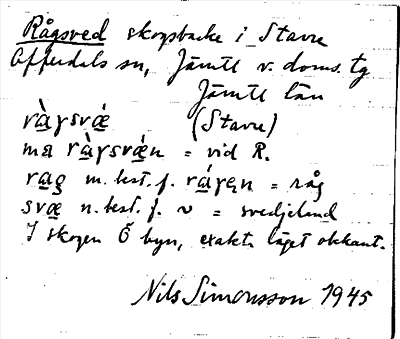 Rågsved skogsbacke i Stavre
Offerdals sn, Jämtl v. doms. tg
Jämtl län
ràγsvǽ (Stavre)
ma ràγsvǽn = vid R.
rag m. best. f. ráγen = råg
svæ n. best. f. ~ = svedjeland
I skogen Ö byn, exakta läget obekant.
Nils Simonsson 1945